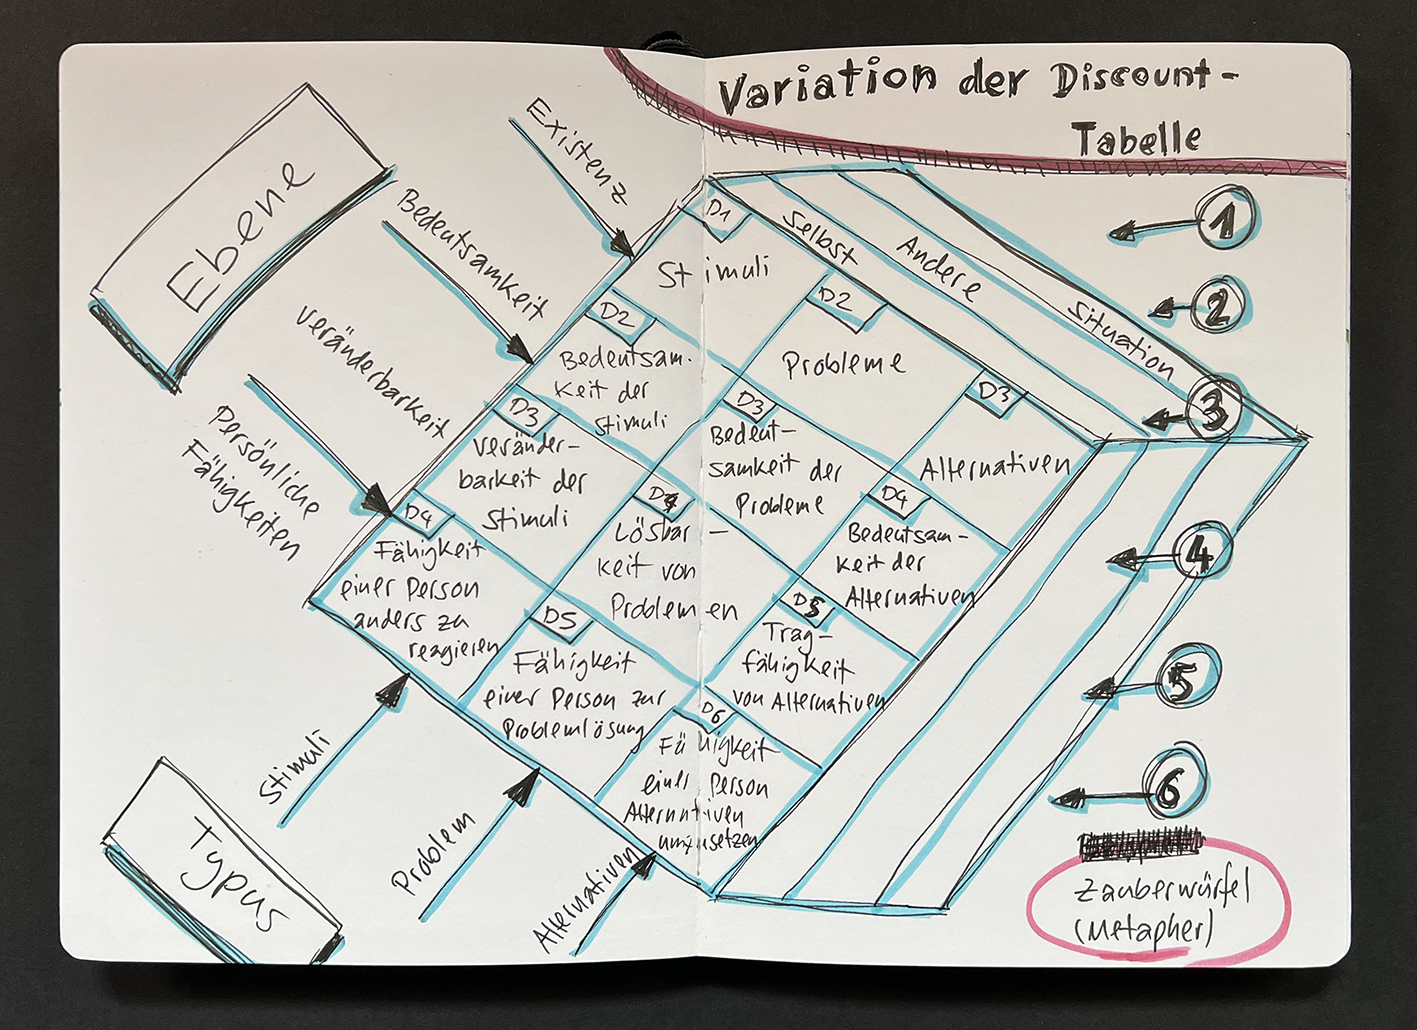 Variation der Discount-
Tabelle
Ebene
Existenz
Bedeutsamkeit
Veränderbarkeit
Persönliche
Fähigkeiten
Typus
Stimuli
Problem
Alternativen
Selbst
Andere
Situation
D1
Stimuli
D2
Bedeutsam-
keit der
Stimuli
D2
Probleme
D3
Veränder-
barkeit der
Stimuli
D3
Bedeut-
samkeit der
Probleme
D3
Alternativen
D4
Fähigkeit
einer Person
anders zu
reagieren
D4
Lösbar-
keit von
Problemen
D4
Bedeutsam-
keit der
Alternativen
D5
Fähigkeit
einer Person zur
Problemlösung
D5
Trag-
fähigkeit
von Alternativen
D6
Fähigkeit
einer Person
Alternativen
umzusetzen
1
2
3
4
5
6
Zauberwürfel
(Metapher)